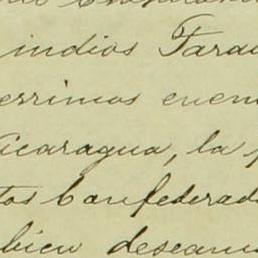 indios Tarau
errimos enem
icaragua, la p
tos Confederado
bien deseamo